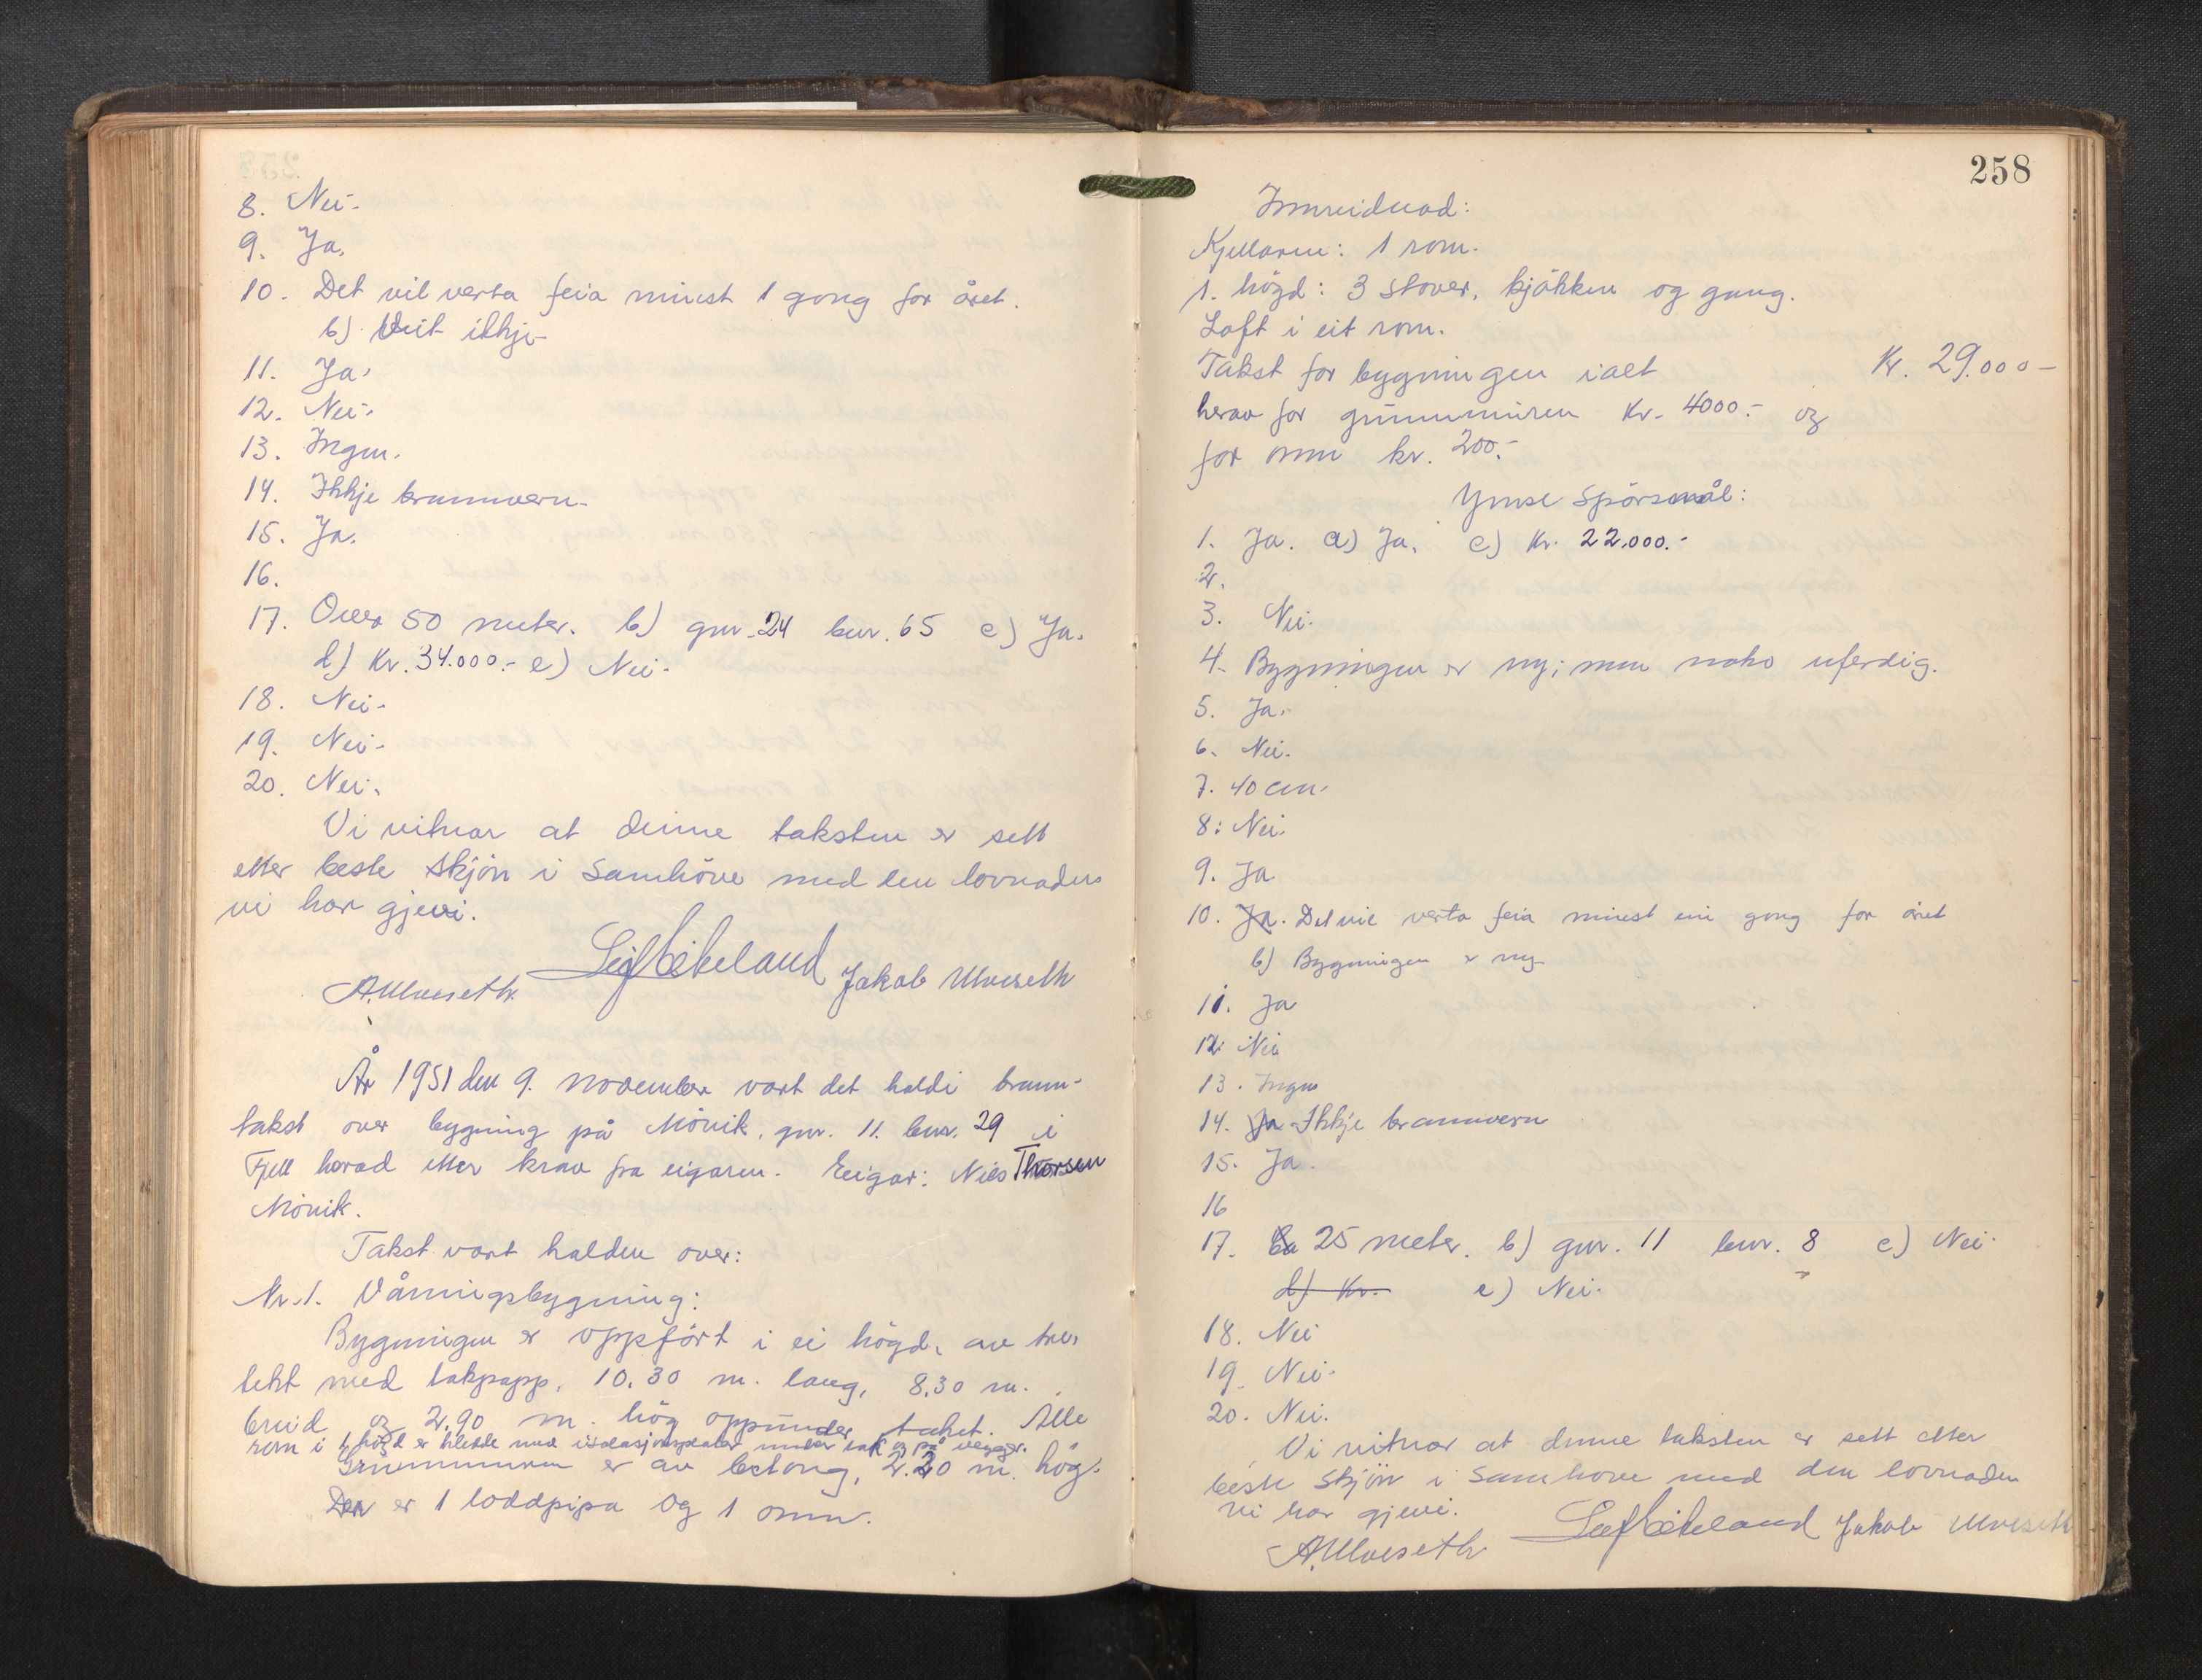 8. Nei.
9. Ja.
10. Det vil verta feia minst 1 gong for året.
b) Veit ikkje
11. Ja.
12. Nei.
13. Ingen.
14. Ikkje brannvern.
15. Ja.
16.
17. Over 50 meter. b) gnr. 24 bnr. 65 c) Ja.
d) Kr. 34.000.- e) Nei.
18. Nei.
19. Nei.
20. Nei.
Vi vitnar at denne taksten er sett
etter beste skjön i samhöve med den lovnaden
vi har gjevi.
A. Ulveseth. Jakob Ulveseth
År 1951 den 9. november vart det haldi brann-
takst over bygning på Mönik, gnr. 11. bnr. 29 i
Fjell herad etter krav fra eigaren. Eigar: Nils Thorsen
Mönik.
Takst vart halden over:
Nr. 1. Våningsbygning:
Bygningen er oppfört i ei högd, av tre,
tekt med takpapp, 10,30 m. lang, 8,30 m.
breid og 2,90 m. hög oppunder taket. Alle
rom i 1. högd er kledde med isolasjonsplater under tak og på vegger.
Grunnmuren er av betong, 2.20 m. hög.
Der er 1 loddpipa og 1 omn.
258
Innreidnad:
Kjellaren: 1 rom.
1. högd: 3 stover, kjökken og gang.
Loft i eit rom.
Takst for bygningen ialt Kr. 29.000-
herav for grunnmuren Kr. 4000.- og
for omn kr. 200.-
Ymse Spörsmål:
1. Ja. a) Ja. c) Kr. 22.000.-
2.
3. Nei.
4. Bygningen er ny; men noko uferdig.
5. Ja.
6. Nei.
7. 40 cm.
8. Nei.
9. Ja
10. Ja. Det vil verta feia minst ein gong for året
b) Bygningen er ny
11. Ja
12. Nei
13. Ingen
14. Ja Ikkje brannvern
15. Ja.
16
17. 25 meter. b) gnr. 11 bnr. 8 c) Nei.
d) Kr. e) Nei.
18. Nei
19. Nei.
20. Nei.
Vi vitnar at denne taksten er sett etter
beste skjön i samhove med den lovnaden
vi har gjevi.
A. Ulveseth Jakob Ulveseth